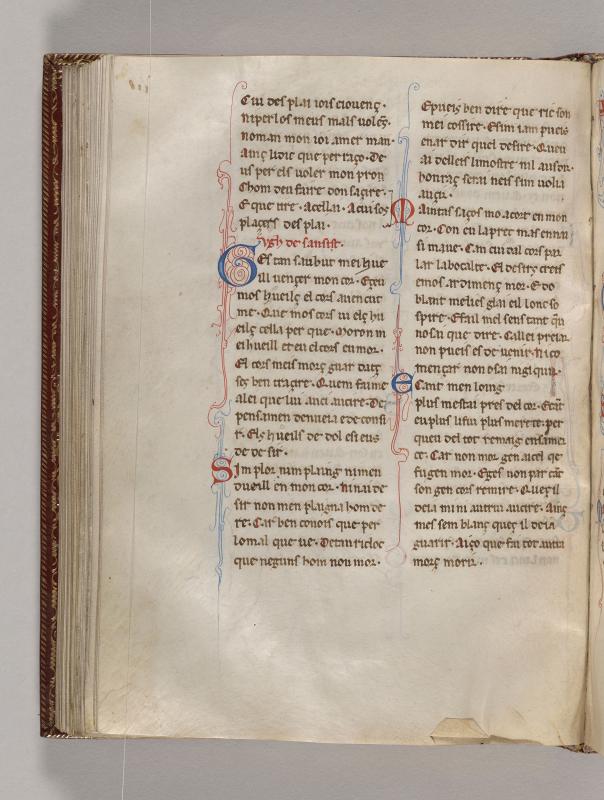 Cui des plai iois eiouenç ·
niperlos meus mals volers ·
noman mon ioi amer man ·
Ainç lidic que per raço · De
us per els uoler mon pron
Chom deu faire don saçire ·
E que tire · Acellai · Acui sos
plaçers des plai ·
de sansisr ·
Ges can saubut mei hue
ill uençer mon cor · Eçeu
mos hueilç el cors auencut
me · Que mos cors ui elç hu
eilç cella per que · Moron m
ei hueill et eu el cors eu mor ·
El cors meis morç guar daiç
seç ben traçire · Quem faime
alei que lui anci aucire · De
pensamen denueia e de consi
r · Els hueils de dol est eus
de de sir ·
Sim plor nim plaing nimen
dueill en mon cor · Ni nai de
sir non men plaigna hom de
re · Car ben conois que per
lo mal que ue · Detan ric loc
que neguns hom non mor ·
Epueis ben dire que ric son
mei cossire · Esim iam pueis
enar dir quel desire · Queu
ai delleis limostre nil auson ·
honraç serai neis sim volia
auçir ·
Maintas saços mo acort en mon
cor · Con eu la pret mas ennai
si maue · Can cui dal cors par
lar la boca lte · El desirs creis
emos ardimenç mor · E do
blant melies glai eil lonc so
spire · Efail mel sens tant qu
nosai que dire · Callei preiar
non pueis es de uenir · Ni co
mençar non osai nigiquir ·
E cant men loing
plus mestai pres del cor · Ecar
eu plus lisui plus merete · per
queu del tot remaig ensamer
ce · Car non mor gen aicel qe
fugen mor · Eges non par car
son gen cors remire · Queç il
deia mi ni autrui aucire · Ainç
mes sem blanç queç il deia
guarir · Aiço que fai tot autra
morç morir ·